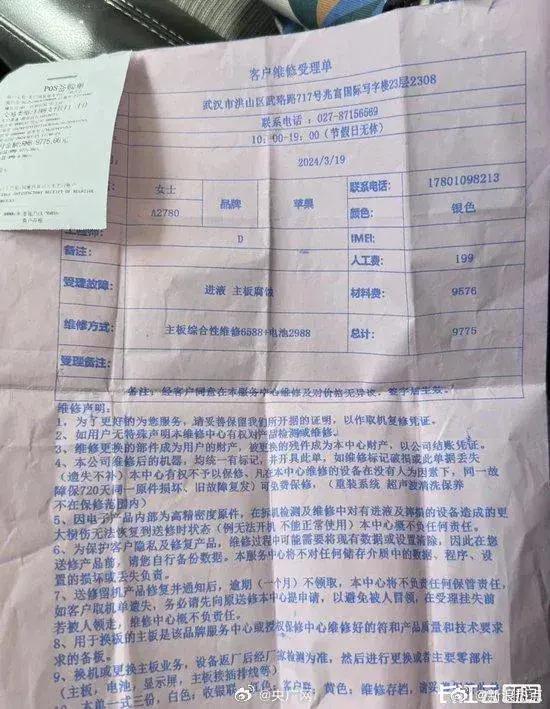 客户维修受理单
POS签购单
武汉市洪山区武珞路717号兆富国际写字楼23层2308
联系电话：027-87156569
10：00-19：00（节假日无休）
2024/3/19
女士
联系电话： 17801098213
A2780
品牌
苹果
颜色： 银色
工程师：
D
IMEI：
备注：
人工费： 199
受理故障： 进液 主板腐蚀
材料费： 9576
维修方式： 主板综合性维修6588+电池2988
总计： 9775
受理备注：
备注：经客户同意在本服务中心维修及对价格无异议，签字后生效。
维修声明：
1、为了更好的为您服务，请妥善保留我们所开据的证明，以作取机复修凭证。
2、如用户无特殊声明本维修中心有权对产品检测或维修。
3、维修更换的部件成为用户的财产，被更换的残件成为本中心财产，以公司结账凭证。
4、本公司维修后的机器，均统一有标记，并开具此单，如维修标记破损或此单据丢失
（遗失不补）本中心有权不予以保修、凡在本中心维修的设备在没有人为因素下，同一故
障保720天同一原件损坏、旧故障复发）可免费保修，（重装系统 超声波清洗保养
不在保修范围内）
5、因电子产品内部为高精密度原件，在拆机检测及维修中对有进液及摔损的设备造成的更
大损伤无法恢复到送修时状态（例无法开机 不能正常使用）本中心概不负任何责任。
6、为保护客户隐私及修复产品，维修过程中可能需要将现有数据或设置清除，因此在您
送修产品前，请您自行备份数据。本服务中心将不对任何储存介质中的数据、程序、设
置的损坏或丢失负责。
7、送修留机产品修复并通知后，逾期（一个月）不领取，本中心将不负责任何保管责任，
如客户取机单遗失，务必请先向原送修本中心提申请，以避免被人冒领，在受理挂失前
若被人领走，维修中心概不负责。
8、用于换板的主板是该品牌服务中心或授权保修中心维修好的符和产品质量和技术要求
求的备板。
9、换机或更换主板业务，设备返厂后经厂家检测为准，然后进行更换或者主要零部件
（主板，电池，显示屏，主板接插排线等）
10、本单一式三份，白色：收银联 红色：客户联 黄色：维修存档，请妥善
@央广网